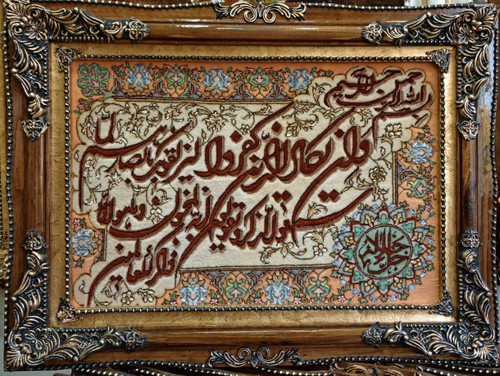 بسم الله الرحمن الرحيم
وان يكاد الذين كفروا ليزلقونك بابصارهم لما
سمعوا الذكر ويقولون انه لمجنون وما هو الا
ذكر للعالمين
الله جل جلاله